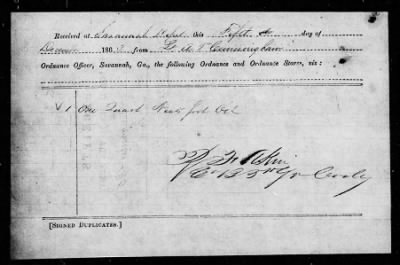 Received at Savannah Depot this Fifth day of
Decem 1863 from Lt M Cunningham
Ordnance Officer, Savannah, Ga., the following Ordnance and Ordnance Stores, viz:
1 One Quart Neats foot Oil
Co 1 5th Ga Cavly
[SIGNED DUPLICATES.]